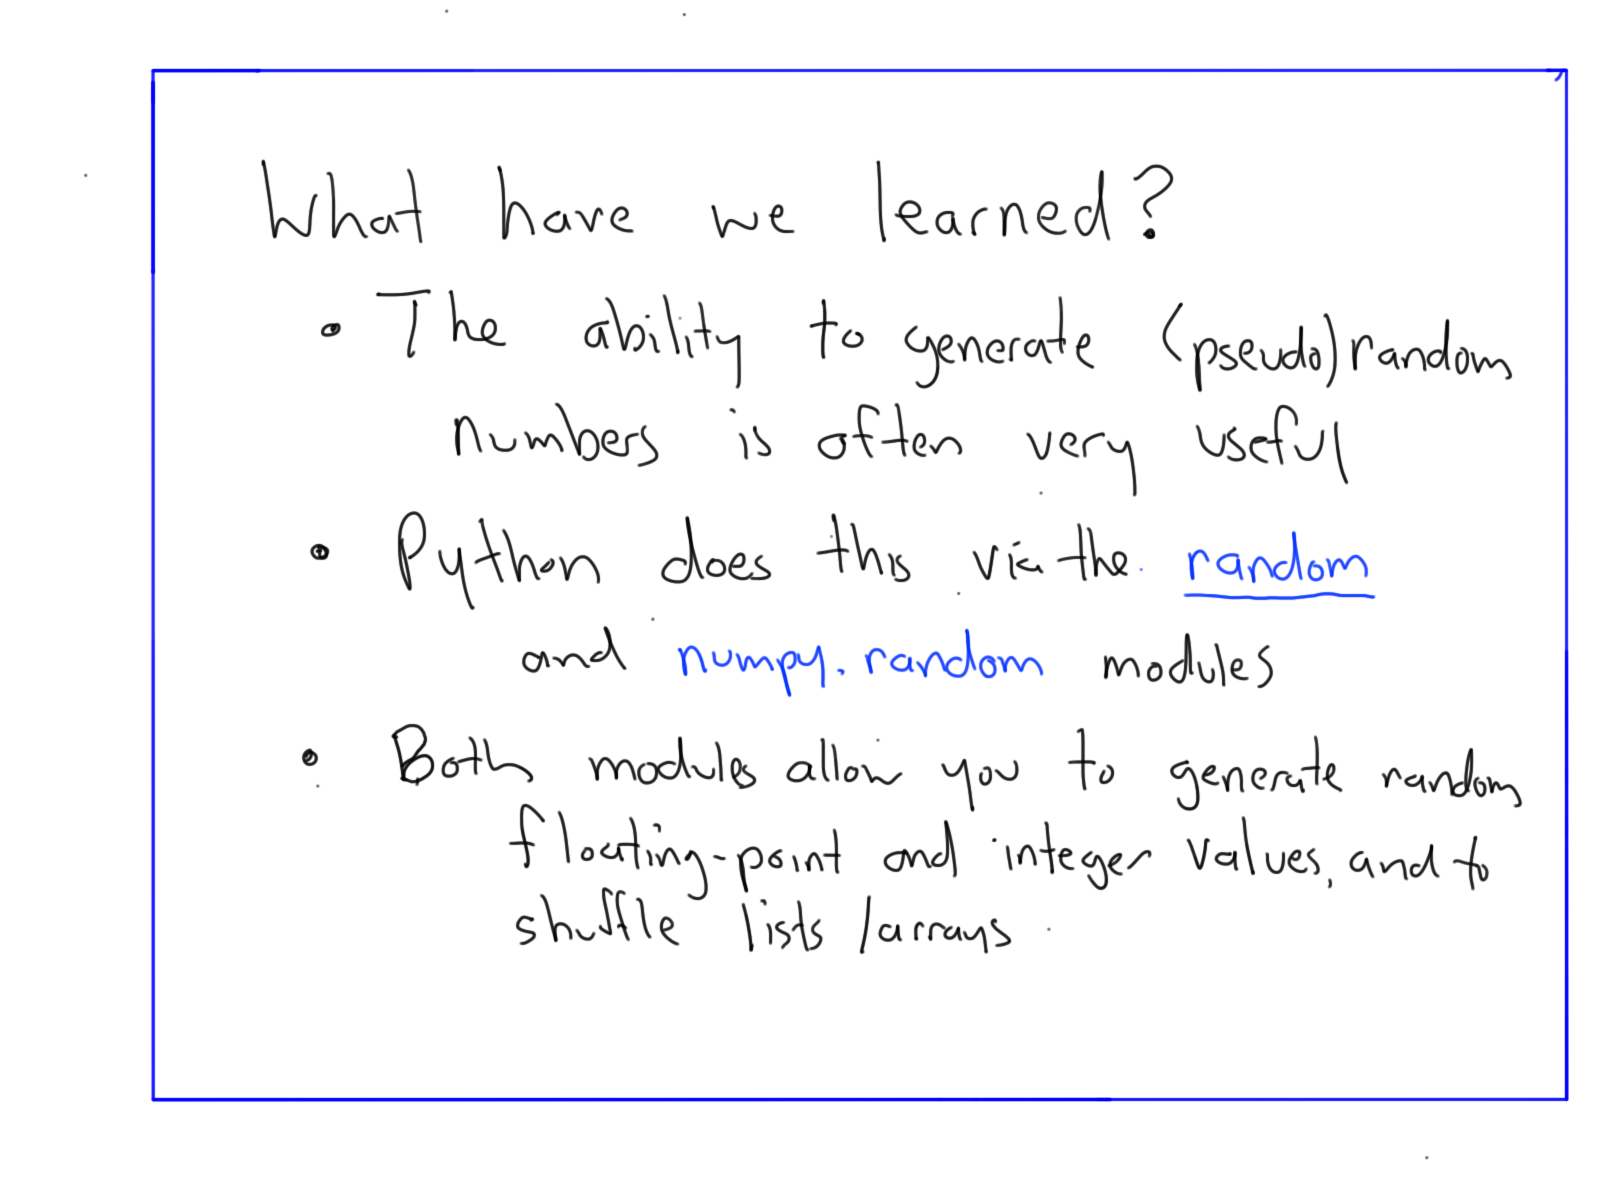 What have we learned?
• The ability to generate (pseudo)random
numbers is often very useful
• Python does this via the random
and numpy.random modules
• Both modules allow you to generate random
floating-point and integer values, and to
shuffle lists/arrays